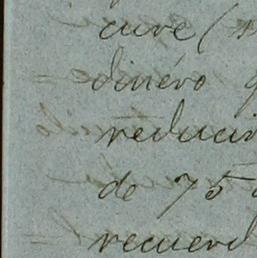 cure (
dinéro
reducir
de 75
recuerd